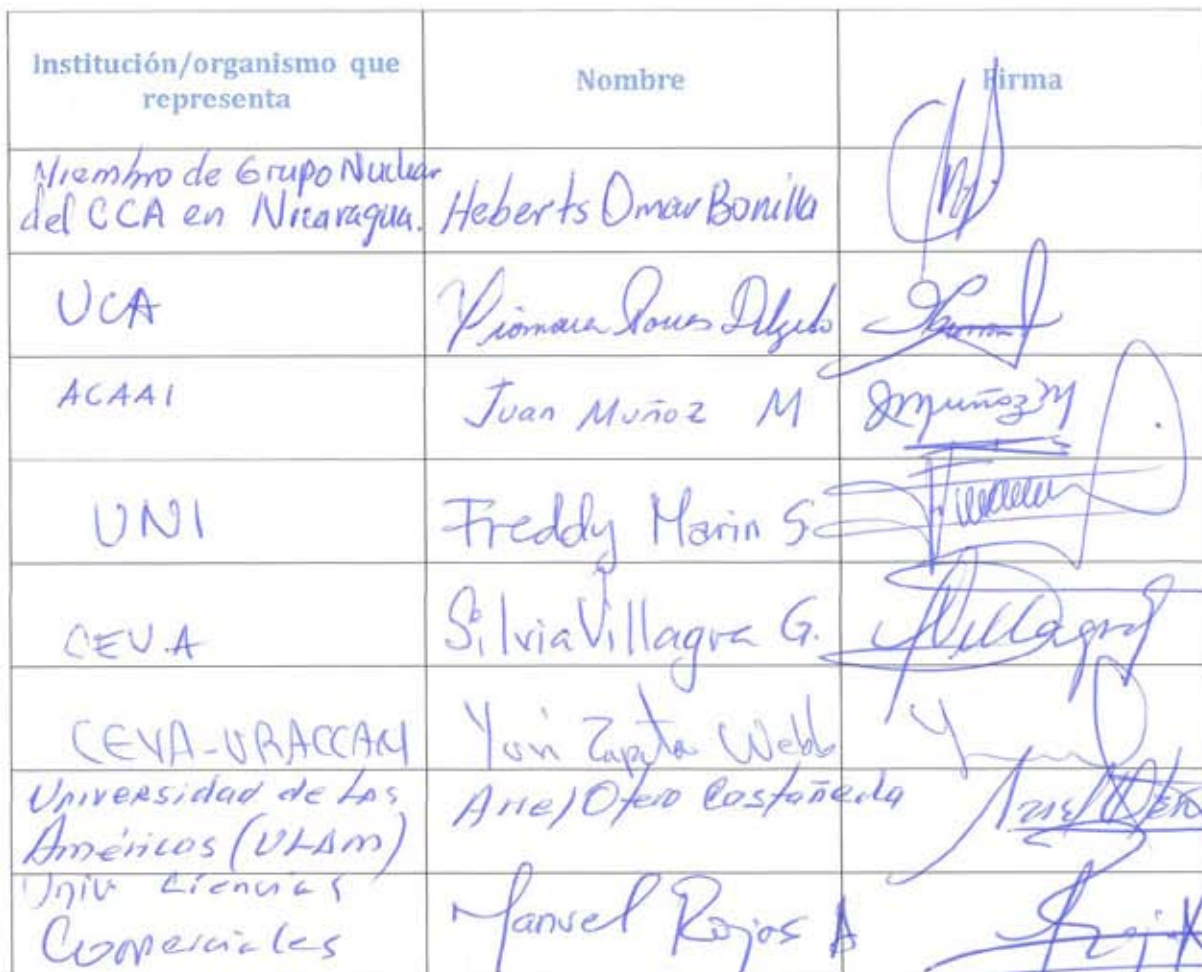 Institución/organismo que representa
Nombre
Firma
Miembro de Grupo Nuclear
del CCA en Nicaragua.
Heberts Omar Bonilla
UCA
Delgado
ACAAI
Juan Muñoz M
JMuñozM
UNI
Freddy Marin S
CEV.A
Silvia Villagra G.
Villagra
CEVA-URACCAN
Yuri Zapata Webb
Universidad de Las
Américas (ULAM)
Ariel Otero Castañeda
Ariel Otero
Univ Ciencias
Comerciales
Manuel Rojas A